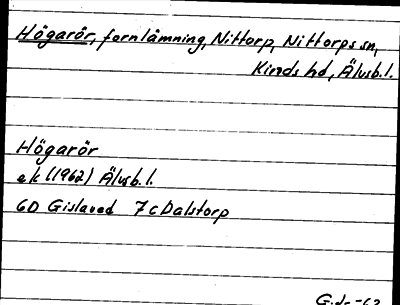 Högarör, fornlämning, Nittorp, Nittorps sn,
Kinds hd, Älvsb. l.
Högarör
ek (1962) Älvsb. l.
6D Gislaved 7c Dalstorp